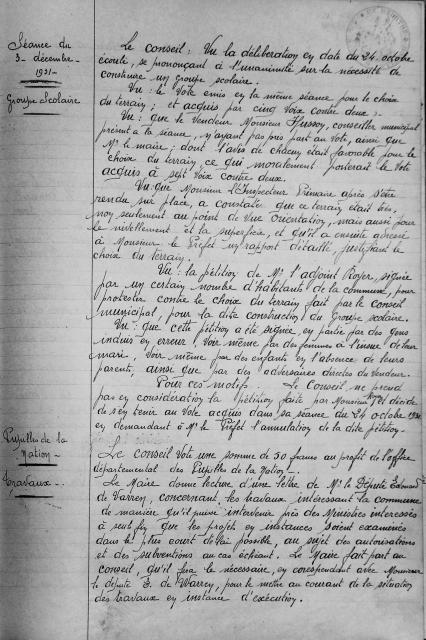 Séance du
3 décembre
1931
Groupe Scolaire
Le conseil: Vu la délibération en date du 24 octobre
écoulé, se prononçant à l'unanimité sur la nécessité de
construire un groupe scolaire.
Vu: le Vote émis en la même séance pour le choix
du terrain; et acquis par cinq voix contre deux.
Vu: que le Vendeur Monsieur Husson, conseiller municipal
présent à la séance, n'ayant pas pris part au vote, ainsi que
Mr le maire; dont l'avis de chacun était favorable pour le
choix du terrain, ce qui moralement porterait le Vote
acquis à sept voix contre deux.
Vu que Monsieur l'Inspecteur Primaire après s'être
rendu sur place, a constaté que ce terrain était bien,
non seulement au point de vue orientation, mais aussi pour
le nivellement et la superficie, et qu'il a ensuite adressé
à Monsieur le Préfet un rapport détaillé, justifiant le
choix du terrain.
Vu: la pétition de Mr l'adjoint Royer, signée
par un certain nombre d'habitants de la commune, pour
protester contre le choix du terrain fait par le conseil
municipal, pour la dite construction du Groupe scolaire.
Vu: que cette pétition a été signée, en partie par des gens
induits en erreur, voir même par des femmes à l'insue de leur
mari, voir même par des enfants en l'absence de leurs
parents, ainsi que par des adversaires directes du Vendeur.
Pour ces motifs. Le Conseil ne prend
pas en considération la pétition faite par Monsieur et décide
de s'en tenir au vote acquis dans sa séance du 24 octobre 1931
en demandant à Mr le Préfet l'annulation de la dite pétition.
Pupilles de la
Nation
Le conseil Vote une somme de 50 francs au profit de l'office
départemental des Pupilles de la Nation.
Travaux
Le Maire donne lecture d'une lettre de Mr le Député Edouard
de Warren, concernant les travaux intéressant la commune
de manière qu'il puisse intervenir près des Ministères intéressés
à seul fin que les projets en instances soient examinés
dans le plus court délai possible, au sujet des autorisations
et des subventions au cas échéant. Le Maire fait part au
conseil, qu'il fera le nécessaire, en corespondant avec Monsieur
le député E. de Warren, pour le mettre au courant de la situation
des travaux en instance d'exécution.